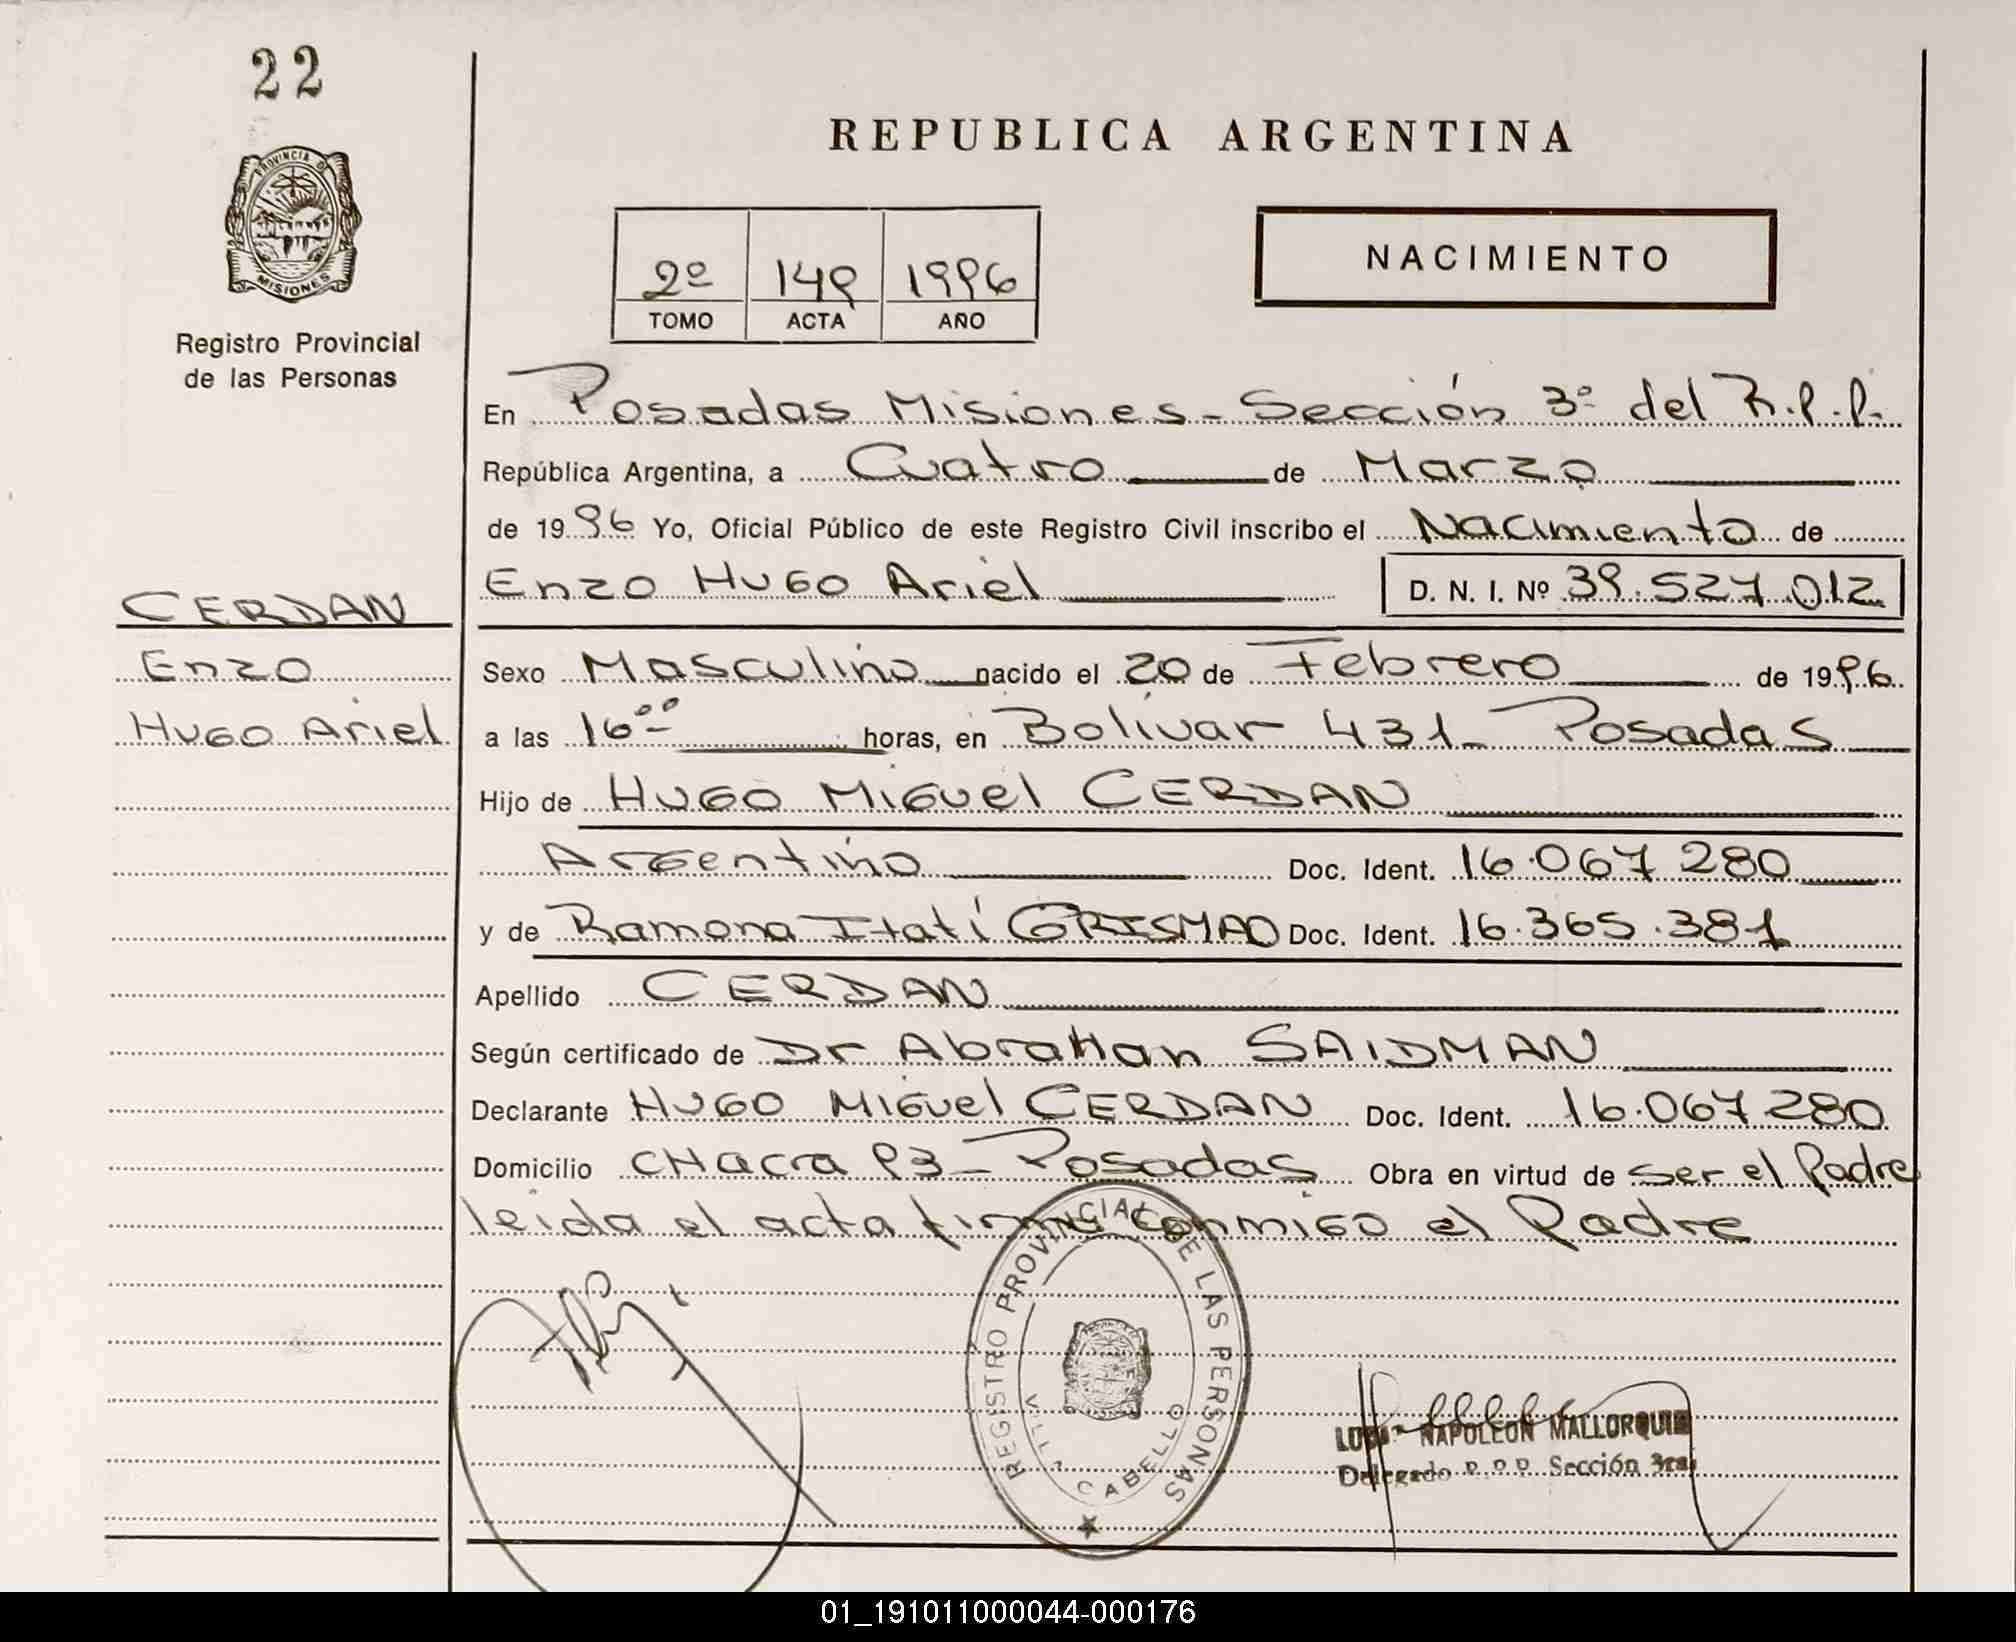 22
REPUBLICA ARGENTINA
PROVINCIA DE
MISIONES
Registro Provincial
de las Personas
2º 149 1996
TOMO ACTA AÑO
NACIMIENTO
En Posadas Misiones - Sección 3º del R.P.P.
República Argentina, a Cuatro de Marzo
de 1996 Yo, Oficial Público de este Registro Civil inscribo el Nacimiento de
Enzo Hugo Ariel D. N. I. Nº 39.527.012
CERDAN
Enzo
Hugo Ariel
Sexo Masculino nacido el 20 de Febrero de 1996
a las 16 00 horas, en Bolívar 431 - Posadas
Hijo de Hugo Miguel CERDAN
Argentino Doc. Ident. 16.067 280
y de Ramona Itatí Doc. Ident. 16.365.381
Apellido CERDAN
Según certificado de Dr Abrahan SAIDMAN
Declarante Hugo Miguel CERDAN Doc. Ident. 16.067 280
Domicilio CHacra 93 - Posadas Obra en virtud de ser el Padre
leida el acta firma conmigo el Padre
REGISTRO PROVINCIAL DE LAS PERSONAS
VILLA CABELLO
NAPOLEON MALLORQUIN
Delegado R.P.P. Sección 3ra
01_191011000044-000176